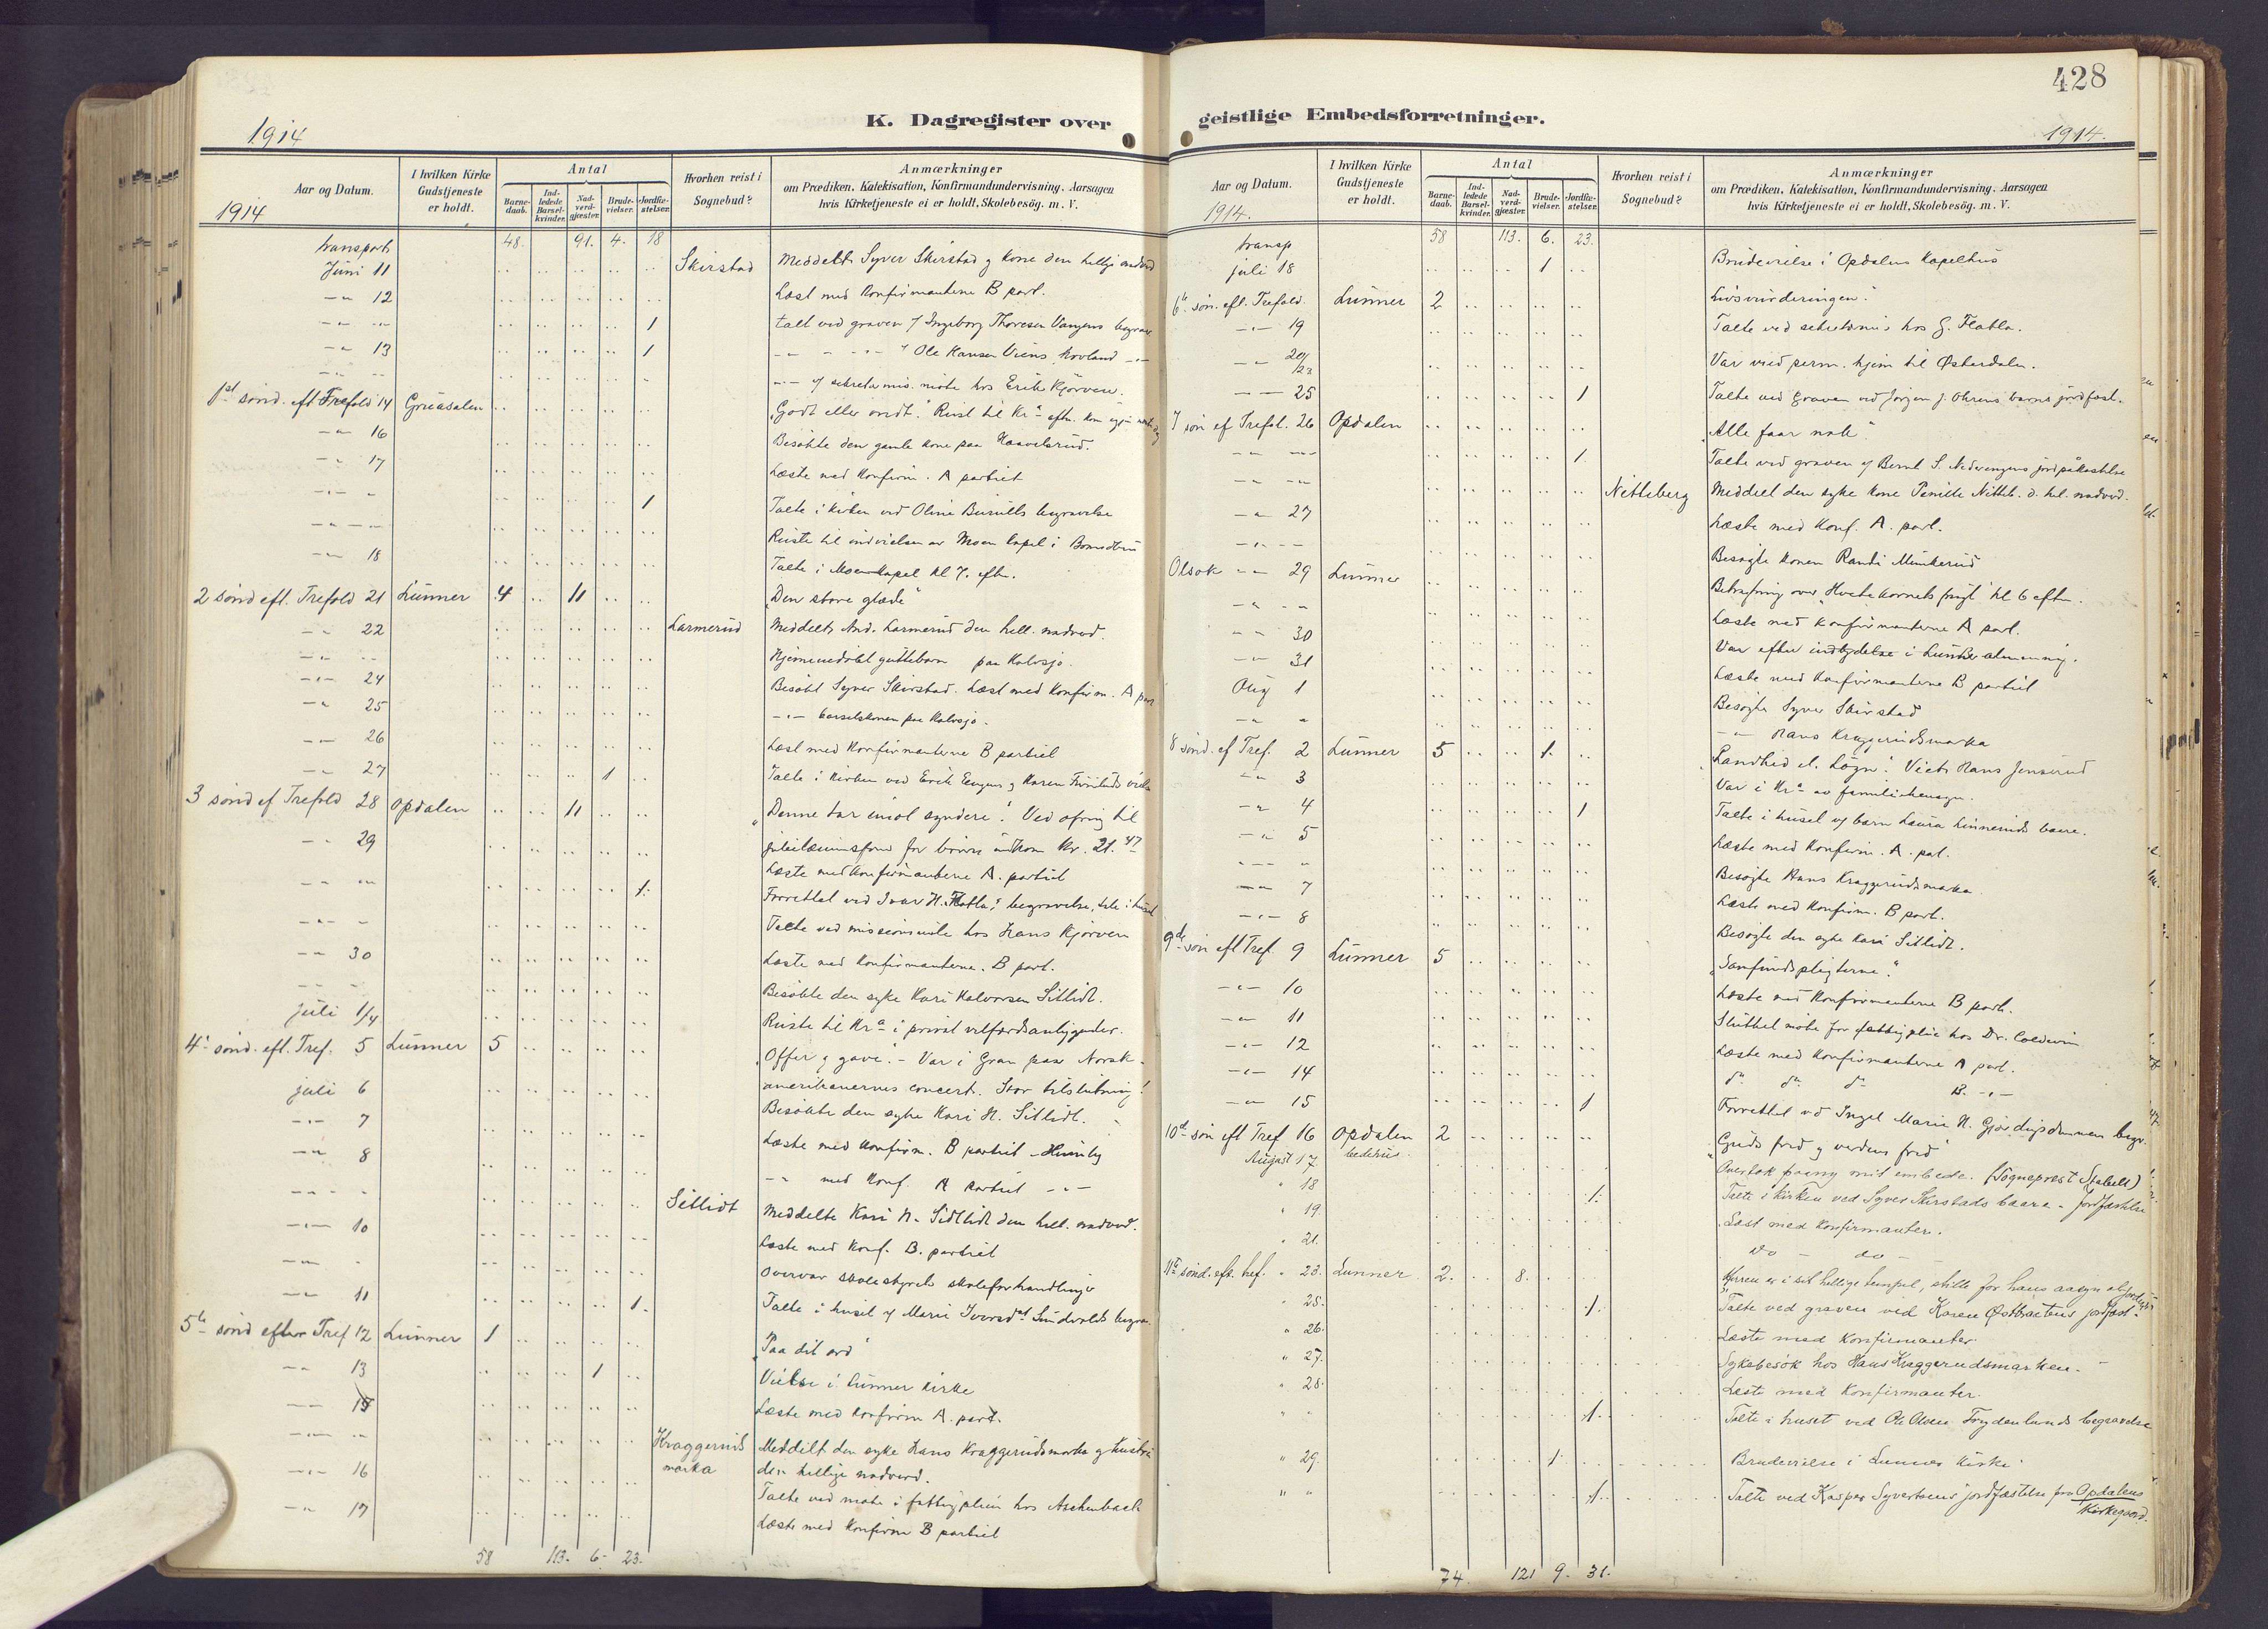 428
K. Dagregister over geistlige Embedsforretninger.
1914
1914.
Aar og Datum.
1914
I hvilken Kirke Gudstjeneste er holdt.
Antal
Barnedaab.
Indledede Barselkvinder.
Nadverdgjæster.
Brudevielser.
Jordfæstelser.
Hvorhen reist i Sognebud?
Anmærkninger
om Prædiken, Katekisation, Konfirmandundervisning, Aarsagen
hvis Kirketjeneste ei er holdt, Skolebesög. m. V.
transport 48. 91. 4. 18
Juni 11 Skirstad Meddelt Syver Skirstad g kone den hellige nadverd
12 Læst med Konfirmantene B part.
1 talt ved graven Ingeborg Thoresen
13 1 Ole Hansen
møte hos Erik Kjørven.
1st sønd. eft Trefold 14 Gruasalen "Godt eller ondt." Reist til Kra
16 Besøkte den gamle kone paa Haavelsrud.
17 Læste med Konfirm. A partiet
1 Talte i kirken ved Oline begravelse
Reiste til indvielsen av Moen kapel i
18 Talte i Moen kapel kl 7. eftm.
2 sønd eft. Trefold 21 Lunner 4 11 "Den store glæde"
22 Larmerud Meddelt And. Larmerud den hell. nadverd.
Hjemmedøbt guttebarn paa Kalvsjø.
24 Besøkt Syver Skirstad. Læst med Konfirm. A part
25 barselskonen paa Kalvsjø.
26 Læst med Konfirmanterne B partiet
27 1 Talte i Kirken ved Erik g Karen
3 sønd ef Trefold 28 Opdalen 11 "Denne tar imot syndere". Ved ofring til
29 jubilæumsfond for indkom Kr. 21.47
Læste med Konfirmanterne A. partiet
1. Forrettet ved Ivar H. Flatla's begravelse, tale i huset
Talte ved missionsmøte hos Hans Kjørven
30 Læste med Konfirmanterne. B part.
Besøkte den syke Kari Halvorsen Sitlidt.
juli 1/4 Reiste til Kra i privat velfærdsanliggender.
4: sønd. eft. Tref. 5 Lunner 5 "Offer g gave". - Var i Gran paa Norsk-
juli 6 amerikanernes concert. Stor tilslutning!
7 Besøkte den syke Kari H. Sitlidt.
8 Læste med Konfirm. B partiet
med Konf. A partiet
10 Sitlidt Meddelte Kari H. Sitlidt den hell. nadverd.
Læste med Konf. B. partiet
11 Overvar skolestyrets
1. Talte i huset Marie
5te sønd efter Tref 12 Lunner 1 "Paa dit ord"
13 1 Vielse i Lunner kirke
Læste med Konfirm A. part.
Kraggeruds marka Meddelt den syke Hans Kraggerudsmarka g hustru
16 den hellige nadverd.
17 Talte ved møte i fattigpleien hos Aschenbach
Læste med Konfirm B partiet
58 113. 6- 23.
Aar og Datum.
1914.
I hvilken Kirke Gudstjeneste er holdt.
Antal
Barnedaab.
Indledede Barselkvinder.
Nadverdgjæster.
Brudevielser.
Jordfæstelser.
Hvorhen reist i Sognebud?
Anmærkninger
om Prædiken, Katekisation, Konfirmandundervisning, Aarsagen
hvis Kirketjeneste ei er holdt, Skolebesög. m. V.
transp 58 113. 6. 23.
juli 18 1 Brudevielse i Opdalens Kapelhus
6te søn. eft. Trefold. Lunner 2 "Livsvurderingen".
19 Talte ved hos G. Flatla.
20/23 Var med perm. hjem til Østerdalen.
25 1 Talte ved Graven ved Jørgen J. barns jordfæst.
7 søn ef Trefol. 26 Opdalen "Alle faar nok".
1 Talte ved graven Bernt S. jordpåkastelse
Nittsberg Meddelt den syke kone Pernille Nittsb. d. hel. nadverd.
27 Læste med Konf. A. part.
Besøgte konen Randi Munkerud
Olsok 29 Lunner Betragtning over "Hvetekornets frugt" kl 6 eftm.
Læste med Konfirmanterne A part.
30 Var efter indbydelse i Lunner almenning.
31 Læste med Konfirmanterne B partiet
Aug 1 Besøgte Syver Skirstad
Hans Kraggerudsmarka
8 sønd. ef Tref. 2 Lunner 5 1. "Sandhed el. Løgn". Viet Hans Jensrud
3 Var i Kra
4 1 Talte i huset barn Laura Linneruds baare.
5 Læste med Konfirm. A. part.
Besøgte Hans Kraggerudsmarka.
7 Læste med Konfirm. B part.
8 Besøgte den syke Kari Sitlidt.
9de søn eft Tref. 9 Lunner 5 "Samfundspligterne".
10 Læste med Konfirmanterne B part.
11 Sluttet møte for fattigpleie hos Dr.
12 Læste med Konfirmanterne A part.
14 do do do B.
15 1 Forrettet vd Ingel Marie N. begr.
10d søn eft Tref 16 Opdalen bedehus. 2 "Guds fred g verdens fred"
August 17 Overtok paany mit embede. (Sogneprest Stabell)
" 18 1. Talte i kirken ved Syver Skirstads baare - Jordfæstelse
" 19 Læst med Konfirmanter.
" 21. do - do -
11te sønd. eft. tref. " 23. Lunner 2. 8. "Herren er i sit hellige tempel, stille for hans aasyn al jorden"
" 25. 1. Talte ved graven ved Karen Østbraatens jordfæst.
" 26. Læste med Konfirmanter.
" 27. Sykebesøk hos Hans Kraggerudsmarken.
" 28. Læste med Konfirmanter.
1. Talte i huset ved Ole Olsen Frydenlunds begravelse
" 29. 1. Brudevielse i Lunner Kirke.
" " 1. Talte ved Kasper Syvertsens jordfæstelse paa Opdalens Kirkegaard.
74 121 9. 31.